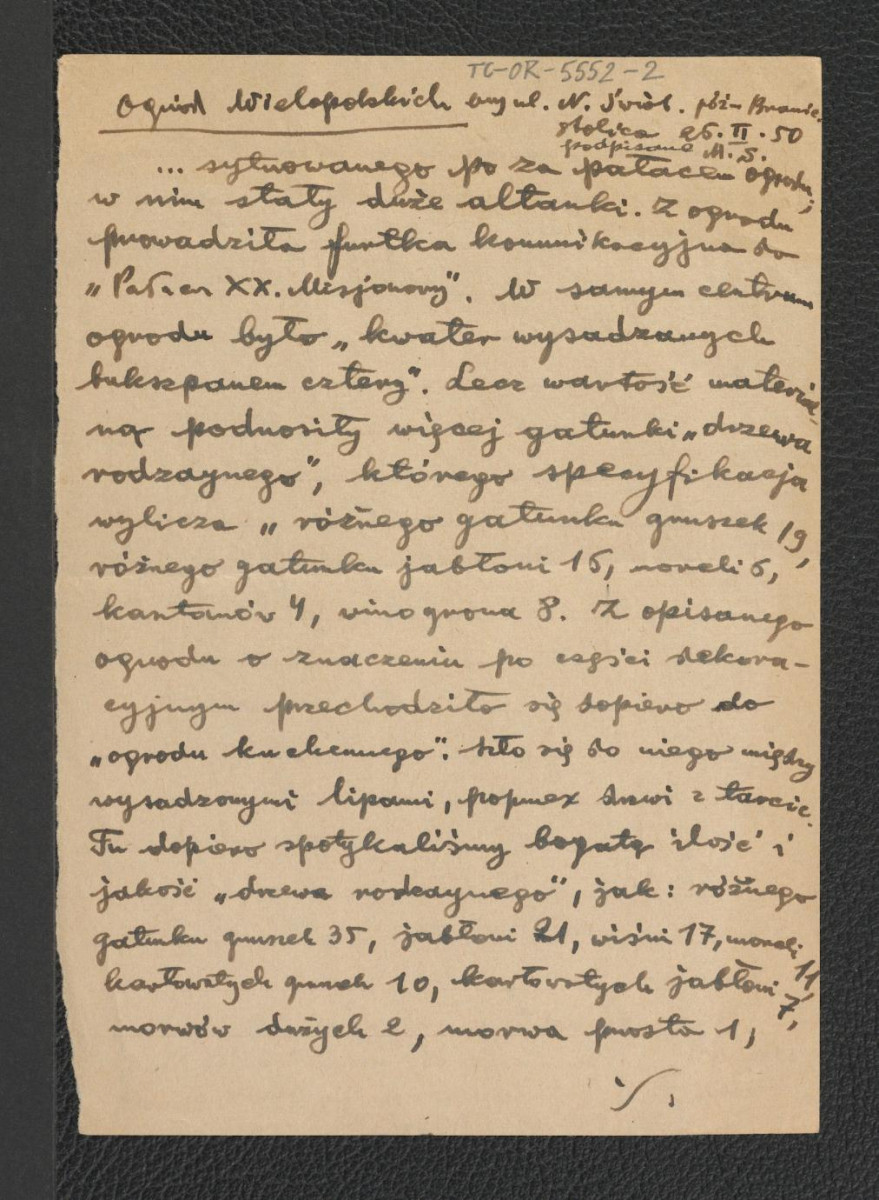 TG-OR-5552-2
Ogród Wielopolskich przy ul. N. Świat. póź. Branic.
Stolica 26.II.50
podpisane M. S.
... sytuowanego po za pałacem ogrodu;
w nim stały duże altanki. Z ogrodu
prowadziła furtka komunikacyjna do
"Pałacu XX. Misjonarzy". W samym centrum
ogrodu było „kwater wysadzanych
bukszpanem cztery". Lecz wartość material-
ną podnosiły więcej gatunki „drzewa
rodzaynego", którego specyfikacja
wylicza „różnego gatunku gruszek 19,
różnego gatunku jabłoni 16, moreli 6,
kasztanów 4, vinogrona 8. Z opisanego
ogrodu o znaczeniu po części dekora-
cyjnym przechodziło się dopiero do
„ogrodu kuchennego". Szło się do niego między
wysadzonymi lipami, poprzez drzwi z tarcic.
Tu dopiero spotykaliśmy bogatą ilość i
jakość „drzewa rodzaynego", jak: różnego
gatunku gruszek 35, jabłoni 21, wiśni 17, moreli 11,
karłowatych gruszek 10, karłowatych jabłoni 7,
morwów dużych 2, morwa prosta 1,